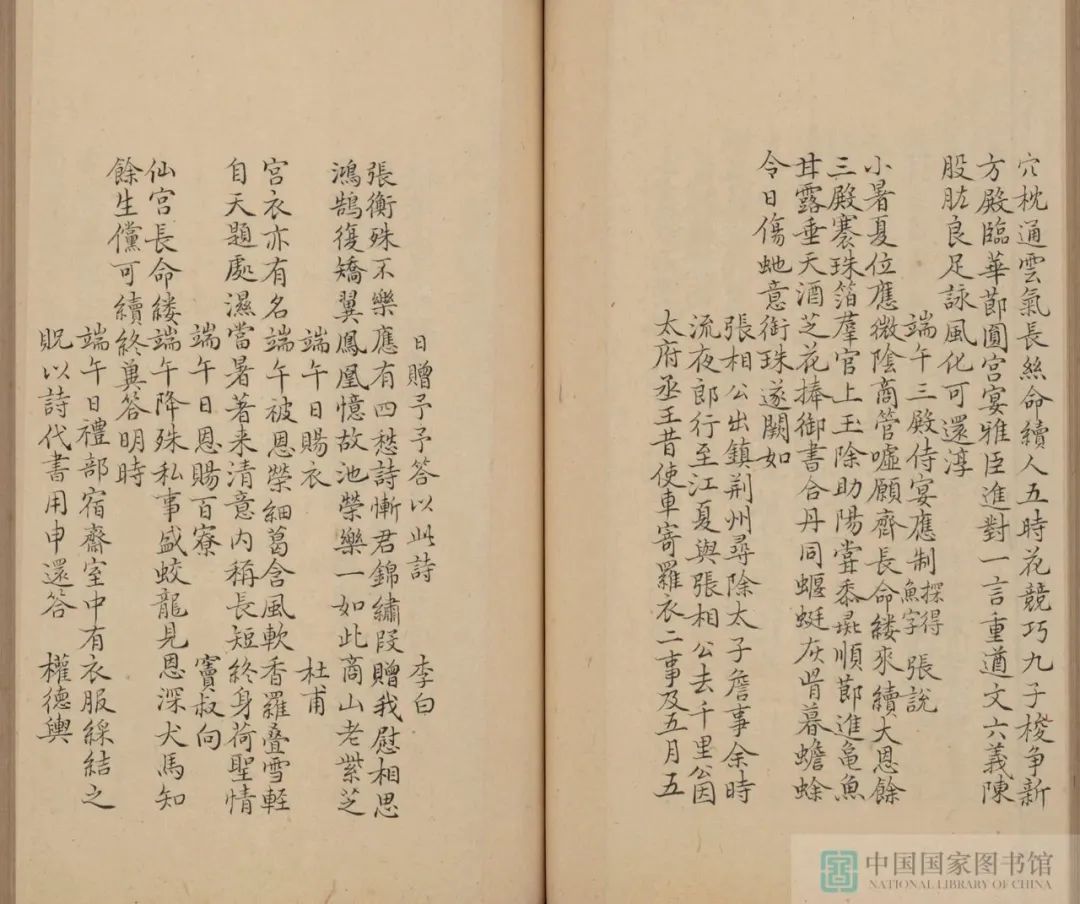 穴枕通雲氣長絲命續人五時花競巧九子椶争新
方殿臨華節圓宮宴雅臣進對一言重遒文六義陳
股肱良足詠風化可還淳
端午三殿侍宴應制探得魚字 張說
小暑夏位應微陰商管噓願齊長命縷來續大恩餘
三殿褰珠箔羣官上玉除助陽嘗黍彘順節進龜魚
甘露垂天酒芝花捧御書合丹同蝘蜓灰骨暮蟾蜍
今日傷虵意銜珠遂闕如
張相公出鎮荆州尋除太子詹事余時
流夜郎行至江夏與張相公去千里公因
太府丞王昔使車寄羅衣二事及五月五
日贈予予答以此詩 李白
張衡殊不樂應有四愁詩慚君錦繡段贈我慰相思
鴻鵠復矯翼鳳凰憶故池榮樂一如此商山老紫芝
端午日賜衣 杜甫
宮衣亦有名端午被恩榮細葛含風軟香羅疊雪輕
自天題處濕當暑著来清意内稱長短終身荷聖情
端午日恩賜百寮 竇叔向
仙宮長命縷端午降殊私事盛蛟龍見恩深犬馬知
餘生儻可續終冀答明時
端午日禮部宿齋室中有衣服綵結之
貺以詩代書用申還答 權德輿
中国国家图书馆
NATIONAL LIBRARY OF CHINA